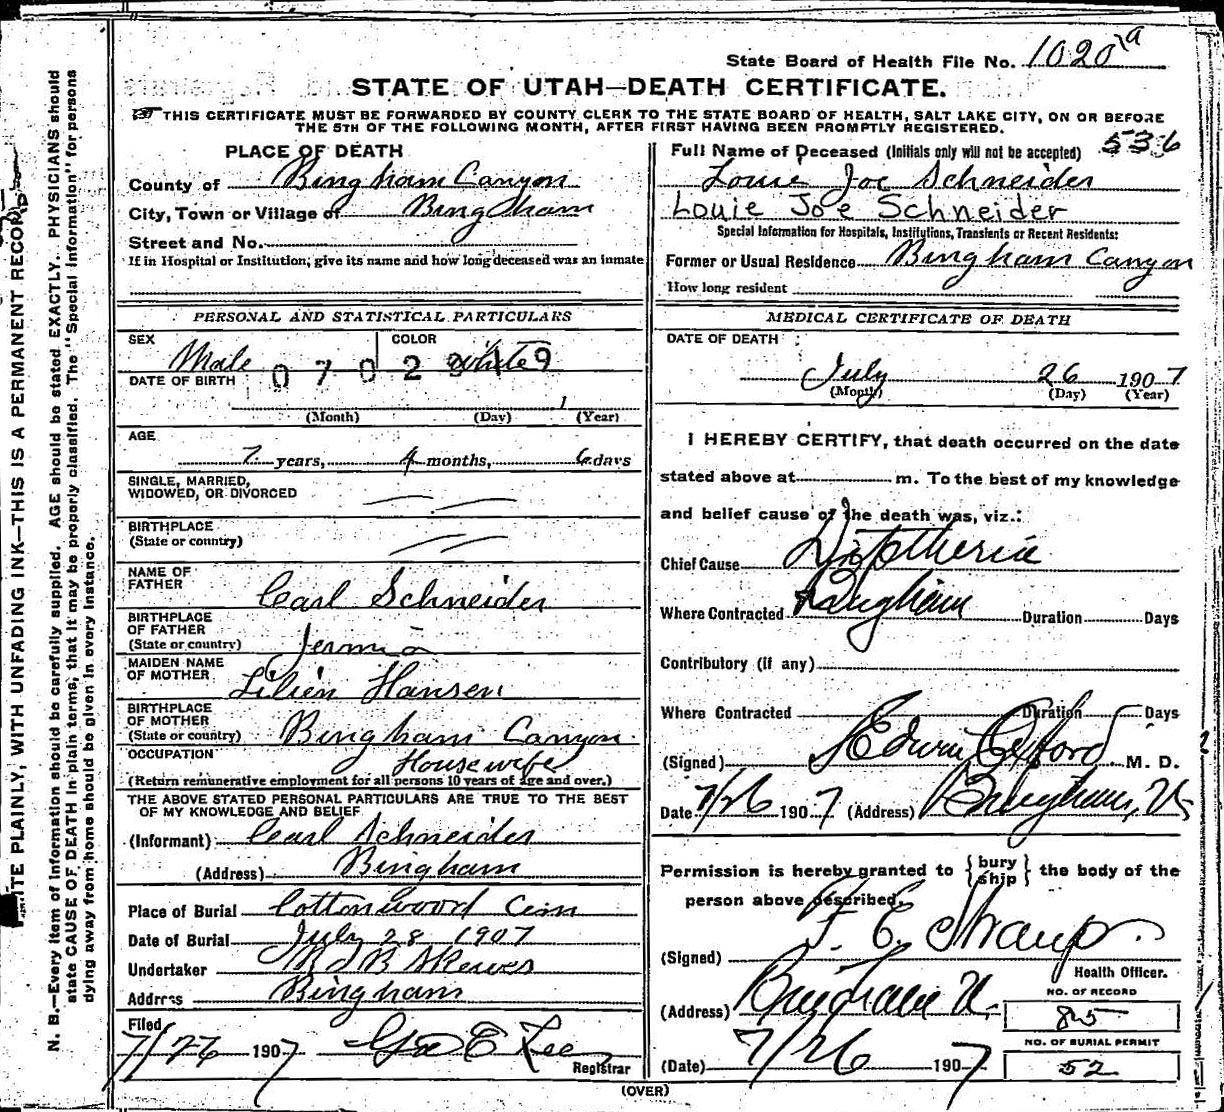 State Board of Health File No. 1020 19
STATE OF UTAH—DEATH CERTIFICATE.
THIS CERTIFICATE MUST BE FORWARDED BY COUNTY CLERK TO THE STATE BOARD OF HEALTH, SALT LAKE CITY, ON OR BEFORE
THE 5TH OF THE FOLLOWING MONTH, AFTER FIRST HAVING BEEN PROMPTLY REGISTERED.
536
PLACE OF DEATH
County of Bingham Canyon
City, Town or Village of Bingham
Street and No.
If in Hospital or Institution, give its name and how long deceased was an inmate
Full Name of Deceased (Initials only will not be accepted)
Louie Joe Schneider
Louie Joe Schneider
Special Information for Hospitals, Institutions, Transients or Recent Residents:
Former or Usual Residence Bingham Canyon
How long resident
PERSONAL AND STATISTICAL PARTICULARS
SEX Male
COLOR White
0702319
DATE OF BIRTH
1
(Month) (Day) (Year)
AGE
7 years, 4 months, 6 days
SINGLE, MARRIED,
WIDOWED, OR DIVORCED
BIRTHPLACE
(State or country)
NAME OF
FATHER Carl Schneider
BIRTHPLACE
OF FATHER
(State or country)
MAIDEN NAME
OF MOTHER Lilien Hansen
BIRTHPLACE
OF MOTHER
(State or country) Bingham Canyon
OCCUPATION Housewife
(Return remunerative employment for all persons 10 years of age and over.)
THE ABOVE STATED PERSONAL PARTICULARS ARE TRUE TO THE BEST
OF MY KNOWLEDGE AND BELIEF
(Informant) Carl Schneider
(Address) Bingham
Place of Burial Cottonwood Cem
Date of Burial July 28 1907
Undertaker Skewes
Address Bingham
Filed
7/26 1907 Geo E Lee
Registrar
MEDICAL CERTIFICATE OF DEATH
DATE OF DEATH
July 26 1907
(Month) (Day) (Year)
I HEREBY CERTIFY, that death occurred on the date
stated above at m. To the best of my knowledge
and belief cause of the death was, viz.:
Chief Cause Diptheria
Where Contracted Bingham Duration Days
Contributory (if any)
Where Contracted Duration Days
(Signed) Edwin M. D.
Date 7/26 1907 (Address) Bingham, U
Permission is hereby granted to {bury ship} the body of the
person above described.
(Signed) F. E. Straup
Health Officer.
(Address) Bingham U.
NO. OF RECORD
85
(Date) 7/26 1907
NO. OF BURIAL PERMIT
52
(OVER)
WRITE PLAINLY, WITH UNFADING INK—THIS IS A PERMANENT RECORD
N. B.—Every item of Information should be carefully supplied. AGE should be stated EXACTLY. PHYSICIANS should
state CAUSE OF DEATH in plain terms, that it may be properly classified. The "Special Information" for persons
dying away from home should be given in every instance.